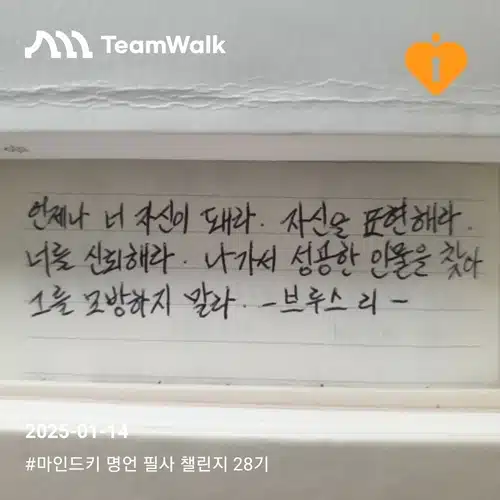 TeamWalk
언제나 너 자신이 돼라. 자신을 표현해라.
너를 신뢰해라. 나가서 성공한 인물을 찾아
그를 모방하지 말라. -브루스 리-
2025-01-14
#마인드키 명언 필사 챌린지 28기